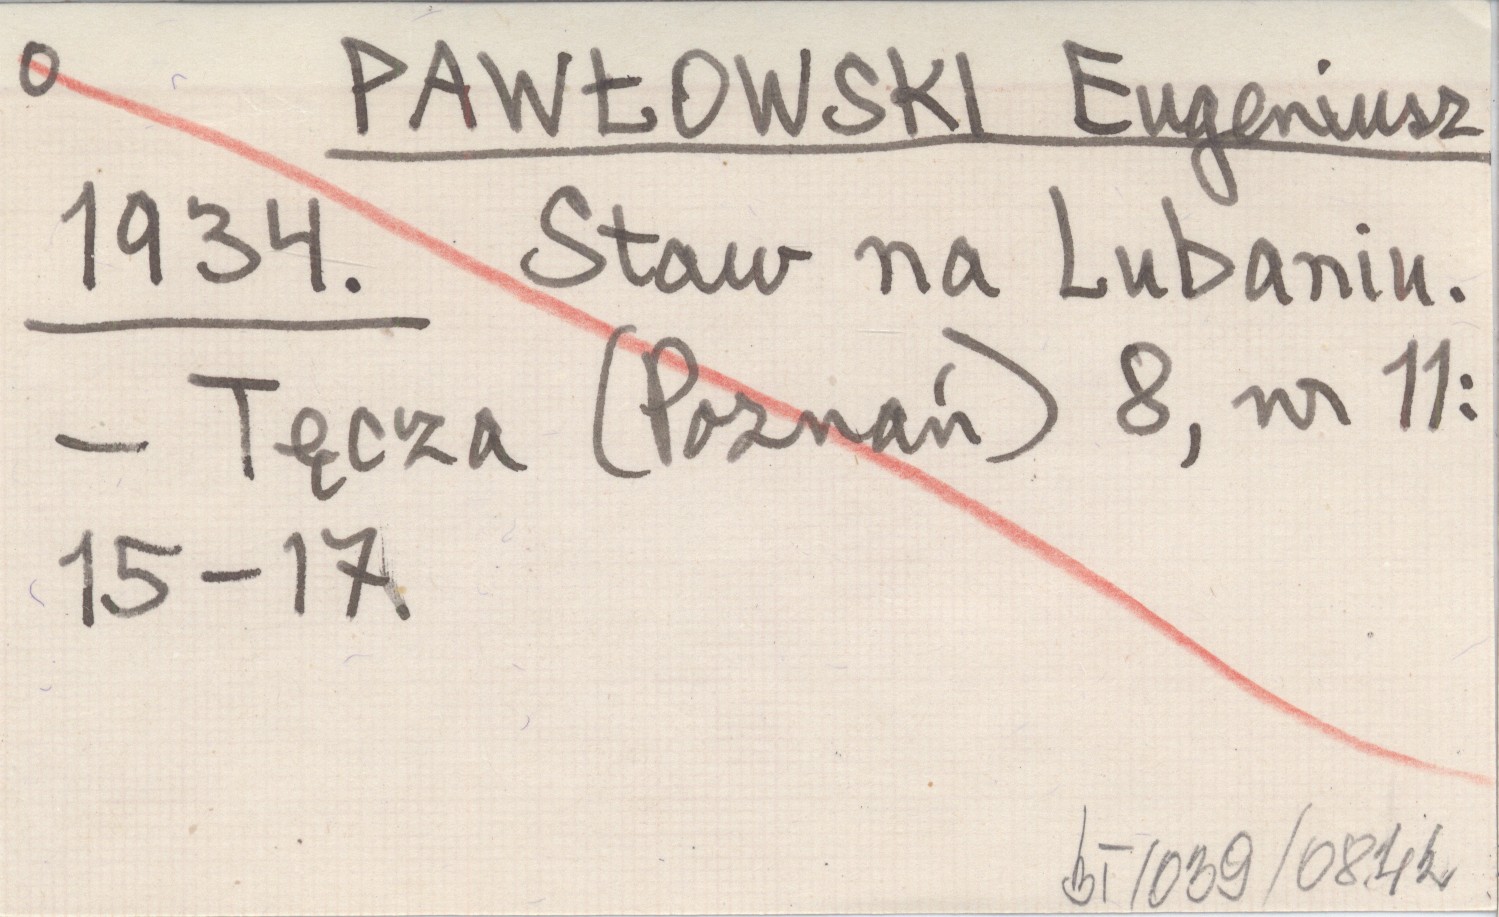 O PAWŁOWSKI Eugeniusz
1934. Staw na Lubaniu.
– Tęcza (Poznań) 8, nr 11:
15–17